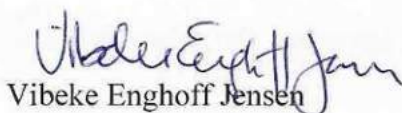 Vibeke Enghoff Jensen
Vibeke Enghoff Jensen